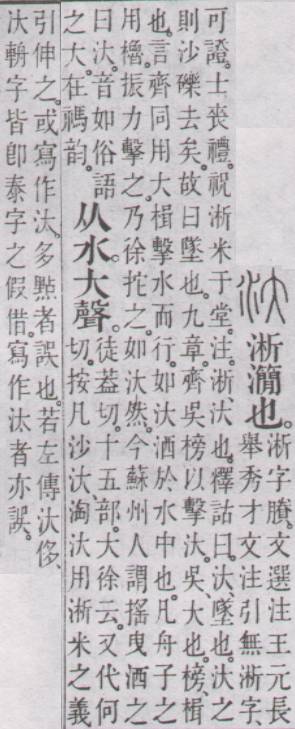 汏 淅㶕也。
淅字賸。文選注王元長
舉秀才文注引無淅字、
可證。士喪禮。祝淅米于堂。注。淅、汏也。釋詁曰。汏、墜也。汏之
則沙礫去矣。故曰墜也。九章。齊吳榜以擊汏。吳、大也。榜、楫
也。言齊同用大楫擊水而行。如汏洒於水中也。凡舟子之
用櫓。振力擊之。乃徐拕之。如汏然。今蘇州人謂搖曳洒之
曰汏。音如俗語
之大。在禡韵。
从水大聲。
徒葢切。十五部。大徐云。又代何
切。按凡沙汏、淘汏用淅米之義
引伸之。或寫作汰。多㸃者誤也。若左傳汏侈、
汏輈字皆卽泰字之假借。寫作汰者亦誤。